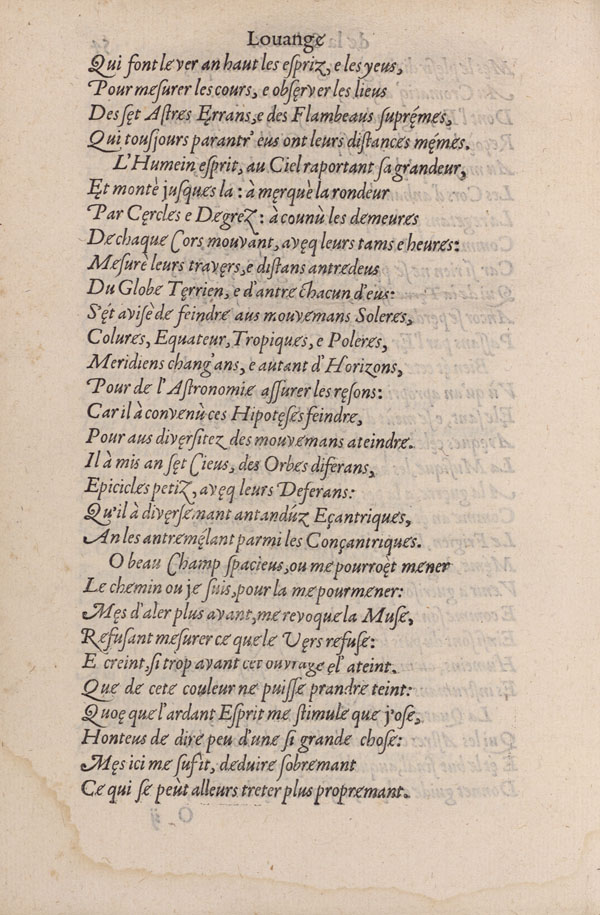 Louange
Qui font lever an haut les espriz, e les yeus,
Pour mesurer les cours, e obsęrver les lieus
Des sęt Astres Ęrrans, e des Flambeaus suprę́mes,
Qui tousjours parantr' eus ont leurs distances mę́mes.
L'Humein esprit, au Ciel raportant sa grandeur,
Et montè jusques la : à męrquè la rondeur
Par Cęrcles e Degrez : à counù les demeures
De chaque Cors mouvant, avęq leurs tams e heures:
Mesurè leurs travęrs, e distans antredeus
Du Globe Tęrrien, e d'antre chacun d'eus:
S'ę́t avisè de feindre aus mouvemans Soleres,
Colures, Equateur, Tropiques, e Poleres,
Meridiens chang'ans, e autant d'Horizons,
Pour de l'Astronomie assurer les ręsons:
Car il à convenù ces Hipotę́ses feindre,
Pour aus divęrsitez des mouvemans ateindre.
Il à mis an sęt Cieus, des Orbes diferans,
Epicicles petiz, avęq leurs Deferans:
Qu'il à divęrsemant antandúz Eçantriques,
An les antremę́lant parmi les Conçantriques.
O beau Champ spacieus, ou me pourroę̀t mener
Le chemin ou je suis, pour la me pourmener:
Męs d'aler plus avant, me revoque la Muse,
Refusant mesurer ce que le Vęrs refuse:
E creint, si trop avant cet ouvrage ęl' ateint.
Que de cete couleur ne puisse prandre teint:
Quoę que l'ardant Esprit me stimule que j'ose,
Honteus de dire peu d'une si grande chose:
Męs ici me sufit, deduire sobremant
Ce qui se peùt alleurs treter plus propremant.
O ij